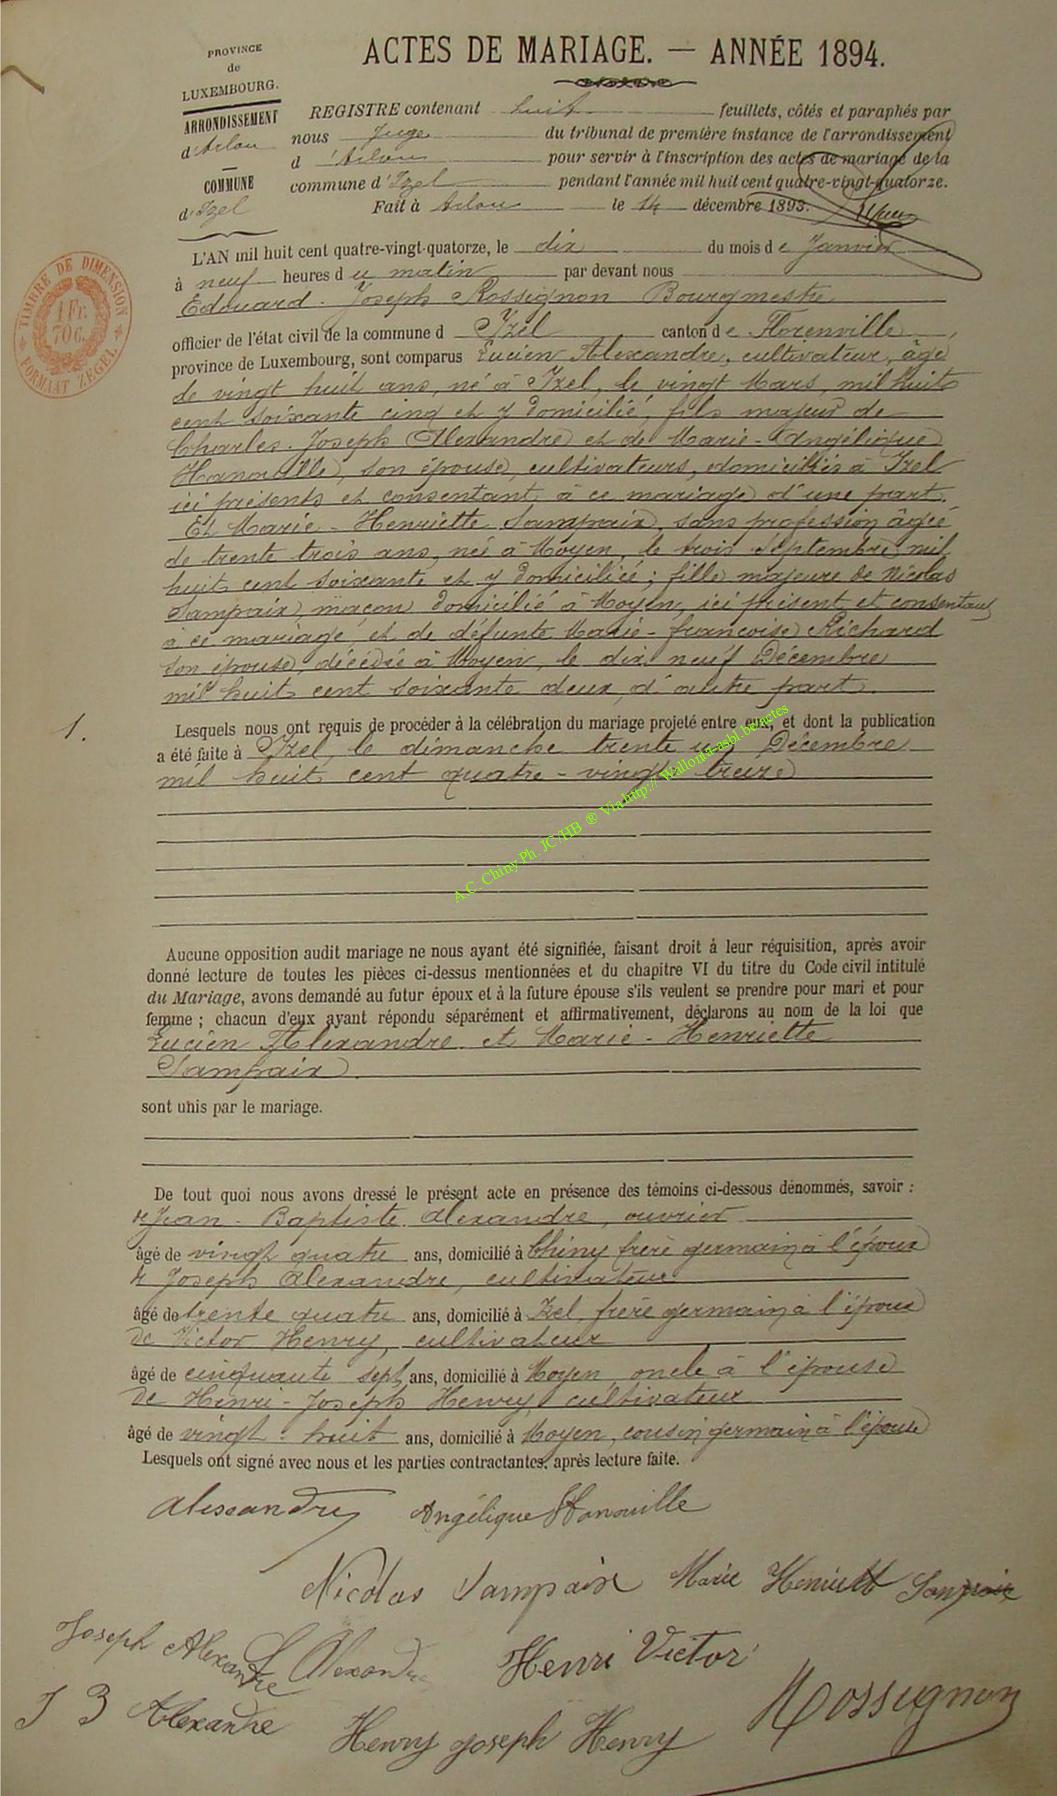 ACTES DE MARIAGE. — ANNÉE 1894.
PROVINCE
de
LUXEMBOURG.
ARRONDISSEMENT
d'Arlon
COMMUNE
d'Izel
REGISTRE contenant huit feuillets, côtés et paraphés par
nous Juge du tribunal de première instance de l'arrondissement
d 'Arlon pour servir à l'inscription des actes de mariage de la
commune d'Izel pendant l'année mil huit cent quatre-vingt-quatorze.
Fait à Arlon le 14 décembre 1893.
L'AN mil huit cent quatre-vingt-quatorze, le dix du mois de Janvier
à neuf heures du matin par devant nous
Edouard-Joseph Rossignon Bourgmestre
officier de l'état civil de la commune d Izel canton de Florenville,
province de Luxembourg, sont comparus Lucien Alexandre, cultivateur, âgé
de vingt huit ans, né à Izel, le vingt Mars, mil huit
cent soixante cinq et y domicilié, fils majeur de
Charles-Joseph Alexandre et de Marie-Angélique
Hanouille, son épouse, cultivateurs, domiciliés à Izel
ici présents et consentant à ce mariage d'une part.
Et Marie-Henriette Sampaix, sans profession âgée
de trente trois ans, née à Moyen, le trois Septembre mil
huit cent soixante et y domiciliée; fille majeure de Nicolas
Sampaix, maçon, domicilié à Moyen, ici présent et consentant
à ce mariage, et de défunte Marie-françoise Richard
son épouse, décédée à Moyen, le dix neuf Décembre
mil huit cent soixante deux, d'autre part.
1.
Lesquels nous ont requis de procéder à la célébration du mariage projeté entre eux, et dont la publication
a été faite à Izel, le dimanche trente un Décembre
mil huit cent quatre-vingt treize
A.C. Chiny Ph. JC/HB ® Via http:// Wallonia-asbl.be/actes
Aucune opposition audit mariage ne nous ayant été signifiée, faisant droit à leur réquisition, après avoir
donné lecture de toutes les pièces ci-dessus mentionnées et du chapitre VI du titre du Code civil intitulé
du Mariage, avons demandé au futur époux et à la future épouse s'ils veulent se prendre pour mari et pour
femme ; chacun d'eux ayant répondu séparément et affirmativement, déclarons au nom de la loi que
Lucien Alexandre et Marie-Henriette
Sampaix
sont unis par le mariage.
De tout quoi nous avons dressé le présent acte en présence des témoins ci-dessous dénommés, savoir :
de Jean-Baptiste Alexandre, ouvrier
âgé de vingt quatre ans, domicilié à Chiny frère germain à l'époux
de Joseph Alexandre, cultivateur
âgé de trente quatre ans, domicilié à Izel, frère germain à l'époux
de Victor Henry, cultivateur
âgé de cinquante sept ans, domicilié à Moyen, oncle à l'épouse
de Henri-Joseph Henry, cultivateur
âgé de vingt-huit ans, domicilié à Moyen, cousin germain à l'épouse
Lesquels ont signé avec nous et les parties contractantes, après lecture faite.
Alexandre Angélique Hanouille
Nicolas Sampaix Marie Henriett Sampaix
Joseph Alexandre L Alexandre Henri Victor
J B Alexandre Henry joseph Henry Rossignon
TIMBRE DE DIMENSION
1 Fr.
70 C.
FORMAAT ZEGEL